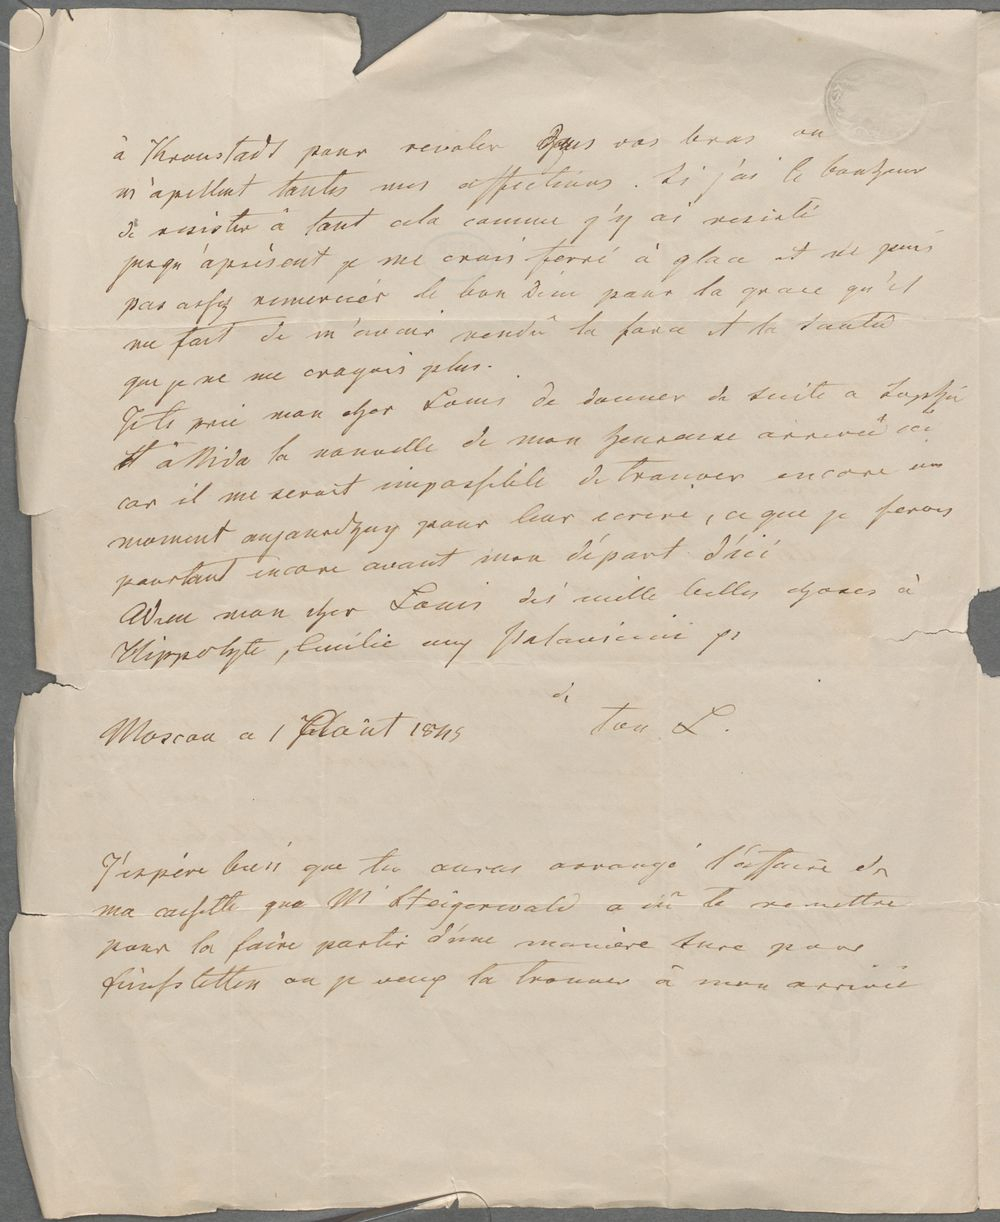 à Kronstadt pour revoler dans vos bras ou
m'apellent toutes mes affections. Si j'ai le bonheur
de resister à tout cela comme j'y ai resisté
jusqu'àprésent je me crois ferré à glace et ne puis
pas assez remercier le bon Dieu pour la grace qu'il
me fait de m'avoir rendû la force et la santé
que je ne me croyois plus.
Je te prie mon cher Louis de donner de suite a Sophie
et à Nida la nouvelle de mon heureuse arrivée ici
car il me seroit impossible de trouver encore un
moment aujourdhuy pour leur ecrire, ce que je ferois
pourtant encore avant mon départ d'ici
Adieu mon cher Louis des mille belles choses à
Hippolyte, Emilie aux Palavicini pp
de
Moscou a 1 Août 1845 ton L.
J'espère bien que tu auras arrangé l'affaire de
ma caissette que Mr Steigerwald a dû te remettre
pour la faire partir d'une manière sure pour
ou je veux la trouver à mon arrivée